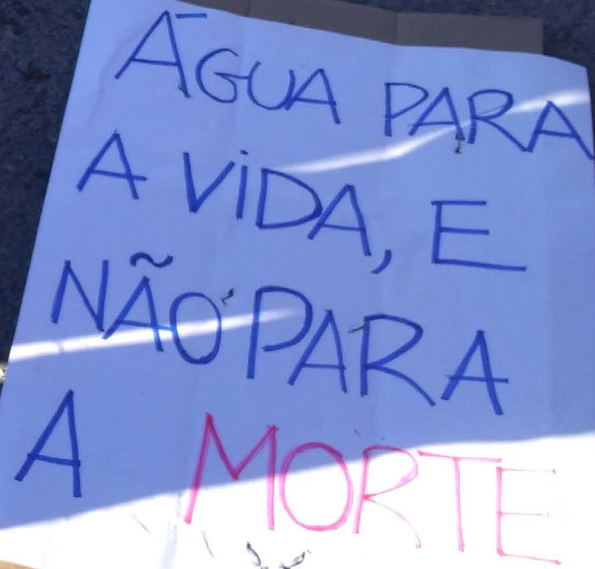 ÁGUA PARA
A ViDA, E
NÃO PARA
A MORTE